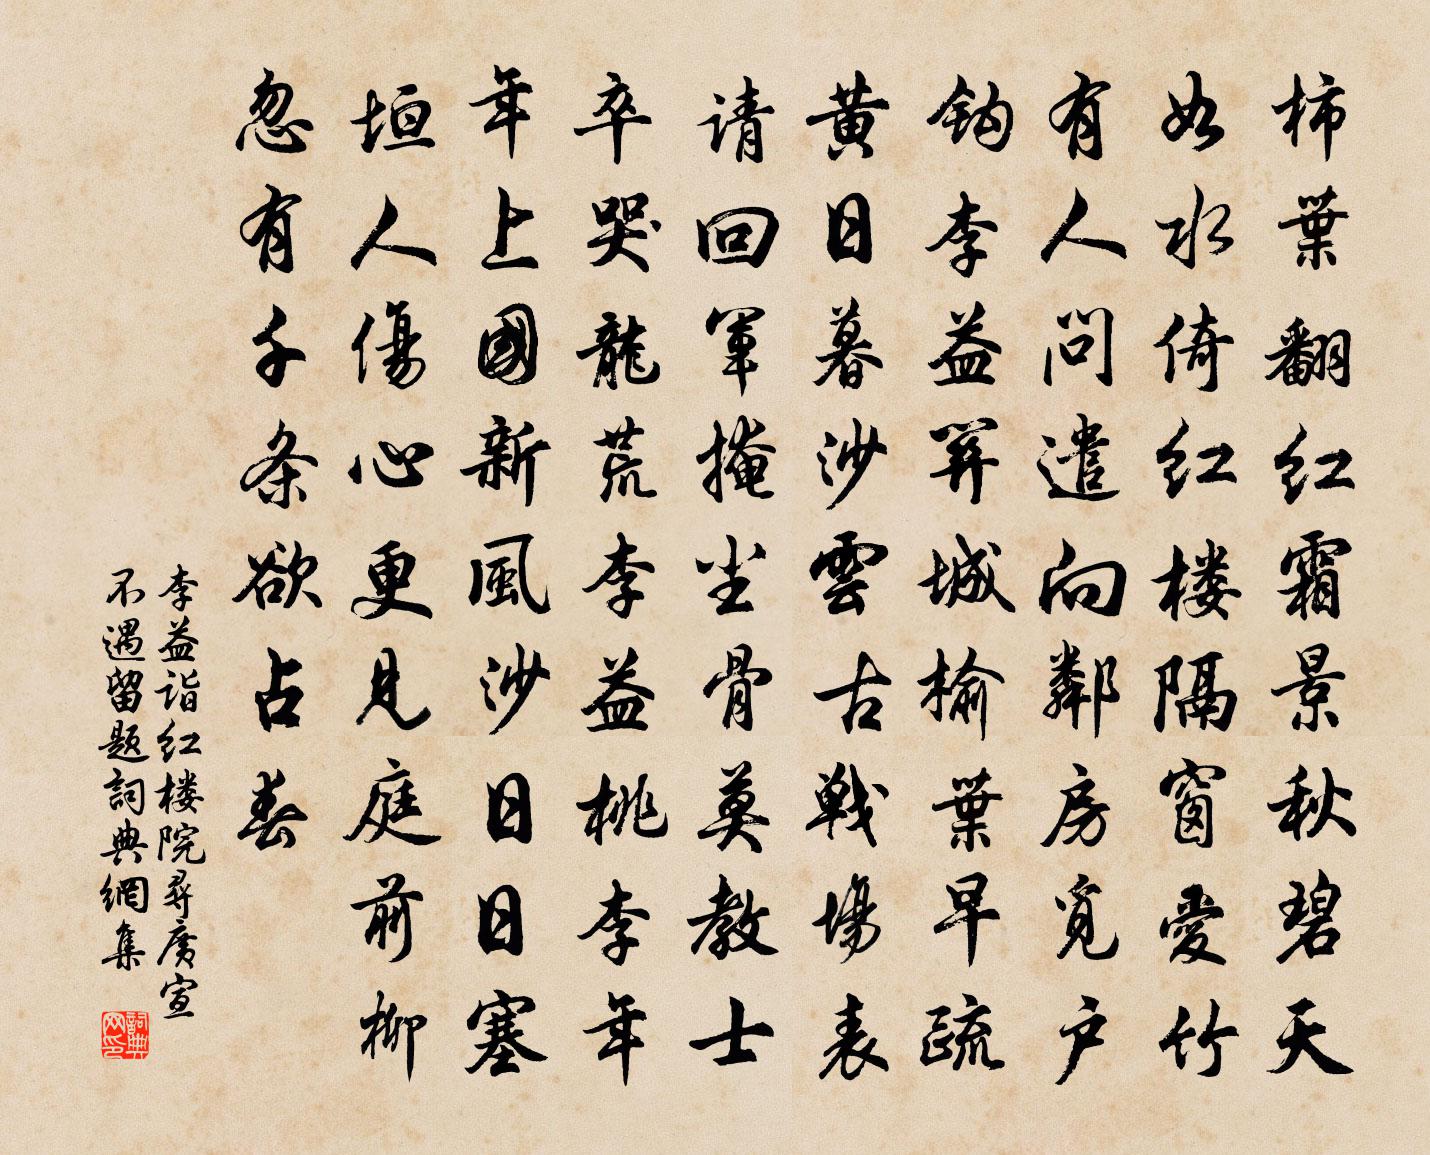 柿葉翻红霜景秋碧天
如水倚红楼隔窗愛竹
有人問遣向鄰房覓户
鈎李益笄城榆葉早疏
黄日暮沙雲古戰場表
请回軍掩尘骨莫教士
卒哭龍荒李益桃李年
年上國新風沙日日塞
垣人傷心更見庭前柳
忽有千条欲占春
李益诣红楼院尋廣宣
不遇留题詞典網集
詞典网印